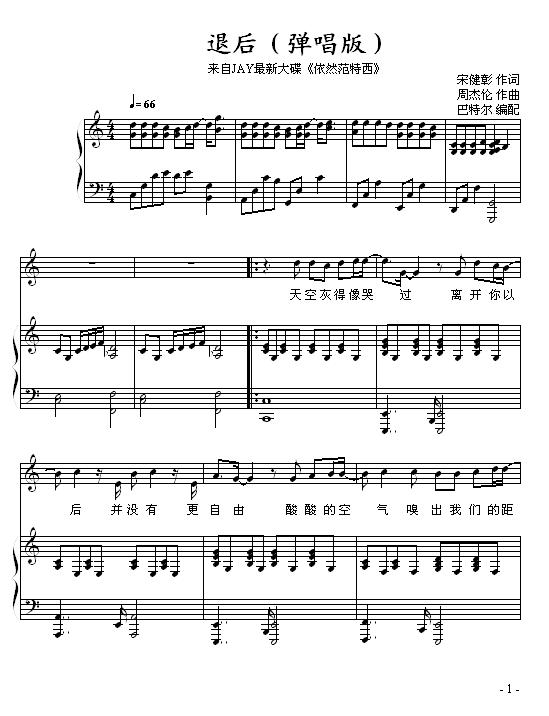 退后（弹唱版）
来自JAY最新大碟《依然范特西》
宋健彰 作词
周杰伦 作曲
巴特尔 编配
♩= 66
天空灰得像哭 过 离开你以
后 并没有 更自由 酸酸的空 气嗅出我们的距
- 1 -